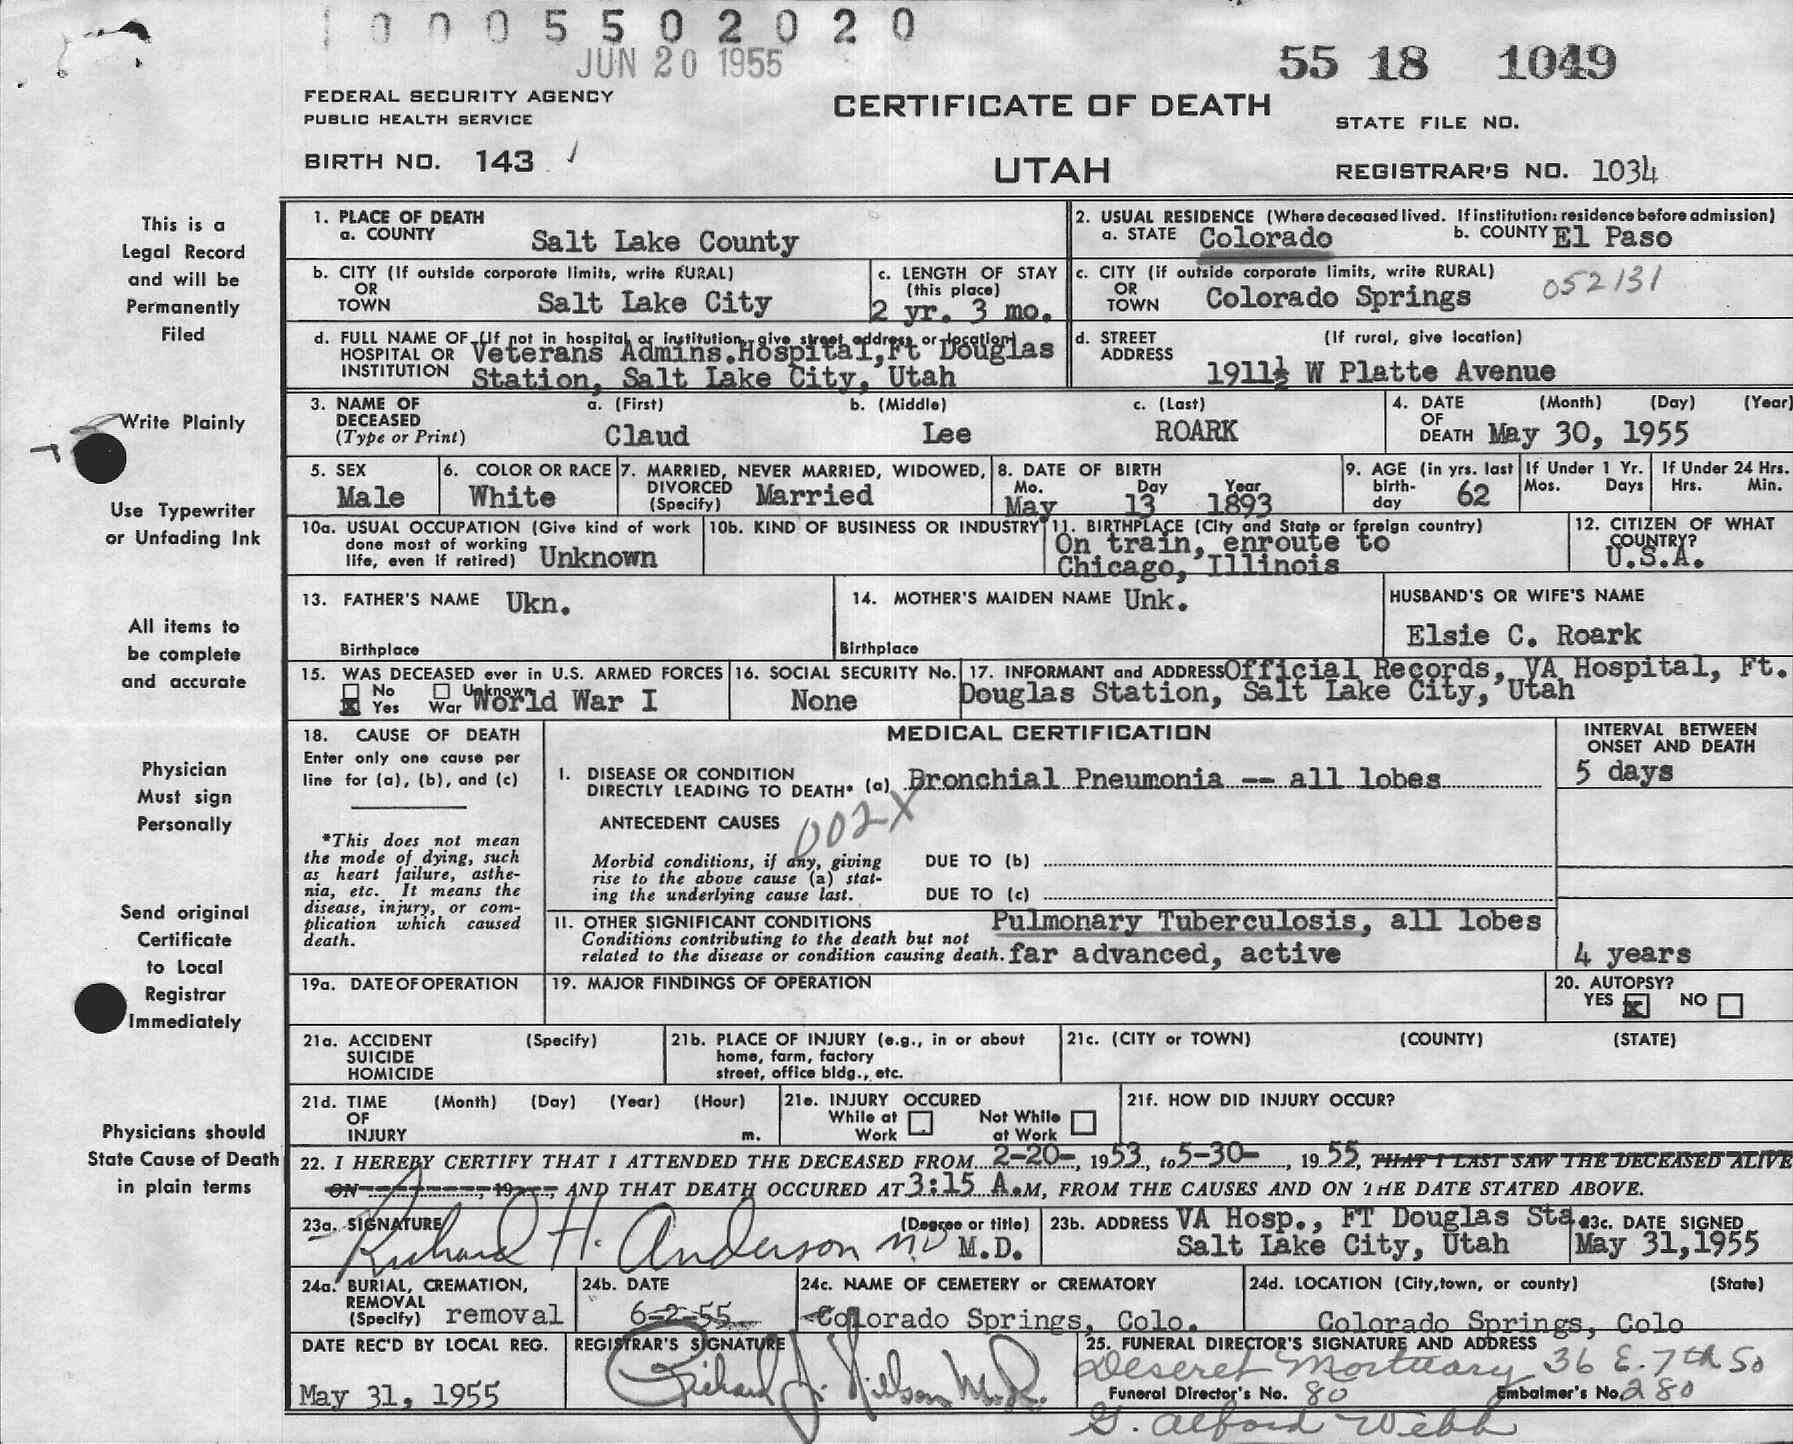 0 0 0 5 5 0 2 0 2 0
JUN 20 1955
55 18 1049
FEDERAL SECURITY AGENCY
PUBLIC HEALTH SERVICE
CERTIFICATE OF DEATH
STATE FILE NO.
BIRTH NO. 143
UTAH
REGISTRAR'S NO. 1034
This is a
Legal Record
and will be
Permanently
Filed
Write Plainly
Use Typewriter
or Unfading Ink
All items to
be complete
and accurate
Physician
Must sign
Personally
Send original
Certificate
to Local
Registrar
Immediately
Physicians should
State Cause of Death
in plain terms
1. PLACE OF DEATH
a. COUNTY Salt Lake County
2. USUAL RESIDENCE (Where deceased lived. If institution: residence before admission)
a. STATE Colorado b. COUNTY El Paso
b. CITY (If outside corporate limits, write RURAL)
OR
TOWN Salt Lake City
c. LENGTH OF STAY
(this place)
2 yr. 3 mo.
c. CITY (if outside corporate limits, write RURAL)
OR
TOWN Colorado Springs 052131
d. FULL NAME OF (If not in hospital or institution, give street address or location)
HOSPITAL OR
INSTITUTION
Veterans Admins.Hospital,Ft Douglas
Station, Salt Lake City, Utah
d. STREET
ADDRESS
(If rural, give location)
1911½ W Platte Avenue
3. NAME OF
DECEASED
(Type or Print)
a. (First) b. (Middle) c. (Last)
Claud Lee ROARK
4. DATE
OF
DEATH
(Month) (Day) (Year)
May 30, 1955
5. SEX
Male
6. COLOR OR RACE
White
7. MARRIED, NEVER MARRIED, WIDOWED,
DIVORCED
(Specify) Married
8. DATE OF BIRTH
Mo. Day Year
May 13 1893
9. AGE (in yrs. last
birth-
day 62
If Under 1 Yr.
Mos. Days
If Under 24 Hrs.
Hrs. Min.
10a. USUAL OCCUPATION (Give kind of work
done most of working
life, even if retired) Unknown
10b. KIND OF BUSINESS OR INDUSTRY
11. BIRTHPLACE (City and State or foreign country)
On train, enroute to
Chicago, Illinois
12. CITIZEN OF WHAT
COUNTRY?
U.S.A.
13. FATHER'S NAME Ukn.
Birthplace
14. MOTHER'S MAIDEN NAME Unk.
Birthplace
HUSBAND'S OR WIFE'S NAME
Elsie C. Roark
15. WAS DECEASED ever in U.S. ARMED FORCES
No Unknown
x Yes War World War I
16. SOCIAL SECURITY No.
None
17. INFORMANT and ADDRESS Official Records, VA Hospital, Ft.
Douglas Station, Salt Lake City, Utah
18. CAUSE OF DEATH
Enter only one cause per
line for (a), (b), and (c)
*This does not mean
the mode of dying, such
as heart failure, asthe-
nia, etc. It means the
disease, injury, or com-
plication which caused
death.
MEDICAL CERTIFICATION
INTERVAL BETWEEN
ONSET AND DEATH
I. DISEASE OR CONDITION
DIRECTLY LEADING TO DEATH* (a) Bronchial Pneumonia -- all lobes
5 days
ANTECEDENT CAUSES
002X
Morbid conditions, if any, giving
rise to the above cause (a) stat-
ing the underlying cause last.
DUE TO (b)
DUE TO (c)
II. OTHER SIGNIFICANT CONDITIONS
Conditions contributing to the death but not
related to the disease or condition causing death.
Pulmonary Tuberculosis, all lobes
far advanced, active
4 years
19a. DATE OF OPERATION
19. MAJOR FINDINGS OF OPERATION
20. AUTOPSY?
YES x NO
21a. ACCIDENT (Specify)
SUICIDE
HOMICIDE
21b. PLACE OF INJURY (e.g., in or about
home, farm, factory
street, office bldg., etc.
21c. (CITY or TOWN) (COUNTY) (STATE)
21d. TIME (Month) (Day) (Year) (Hour)
OF
INJURY m.
21e. INJURY OCCURED
While at Not While
Work at Work
21f. HOW DID INJURY OCCUR?
22. I HEREBY CERTIFY THAT I ATTENDED THE DECEASED FROM 2-20-, 1953, to 5-30-, 1955, THAT I LAST SAW THE DECEASED ALIVE
ON , 19 , AND THAT DEATH OCCURED AT 3:15 A.M, FROM THE CAUSES AND ON THE DATE STATED ABOVE.
23a. SIGNATURE (Degree or title)
Richard H. Anderson MD M.D.
23b. ADDRESS VA Hosp., FT Douglas Sta
Salt Lake City, Utah
23c. DATE SIGNED
May 31,1955
24a. BURIAL, CREMATION,
REMOVAL
(Specify) removal
24b. DATE
6-2-55
24c. NAME OF CEMETERY or CREMATORY
Colorado Springs, Colo.
24d. LOCATION (City,town, or county) (State)
Colorado Springs, Colo
DATE REC'D BY LOCAL REG.
May 31, 1955
REGISTRAR'S SIGNATURE
Richard J. Nilson
25. FUNERAL DIRECTOR'S SIGNATURE AND ADDRESS
Deseret Mortuary 36 E. 7th So
Funeral Director's No. 80 Embalmer's No. 280
G. Alford Webb